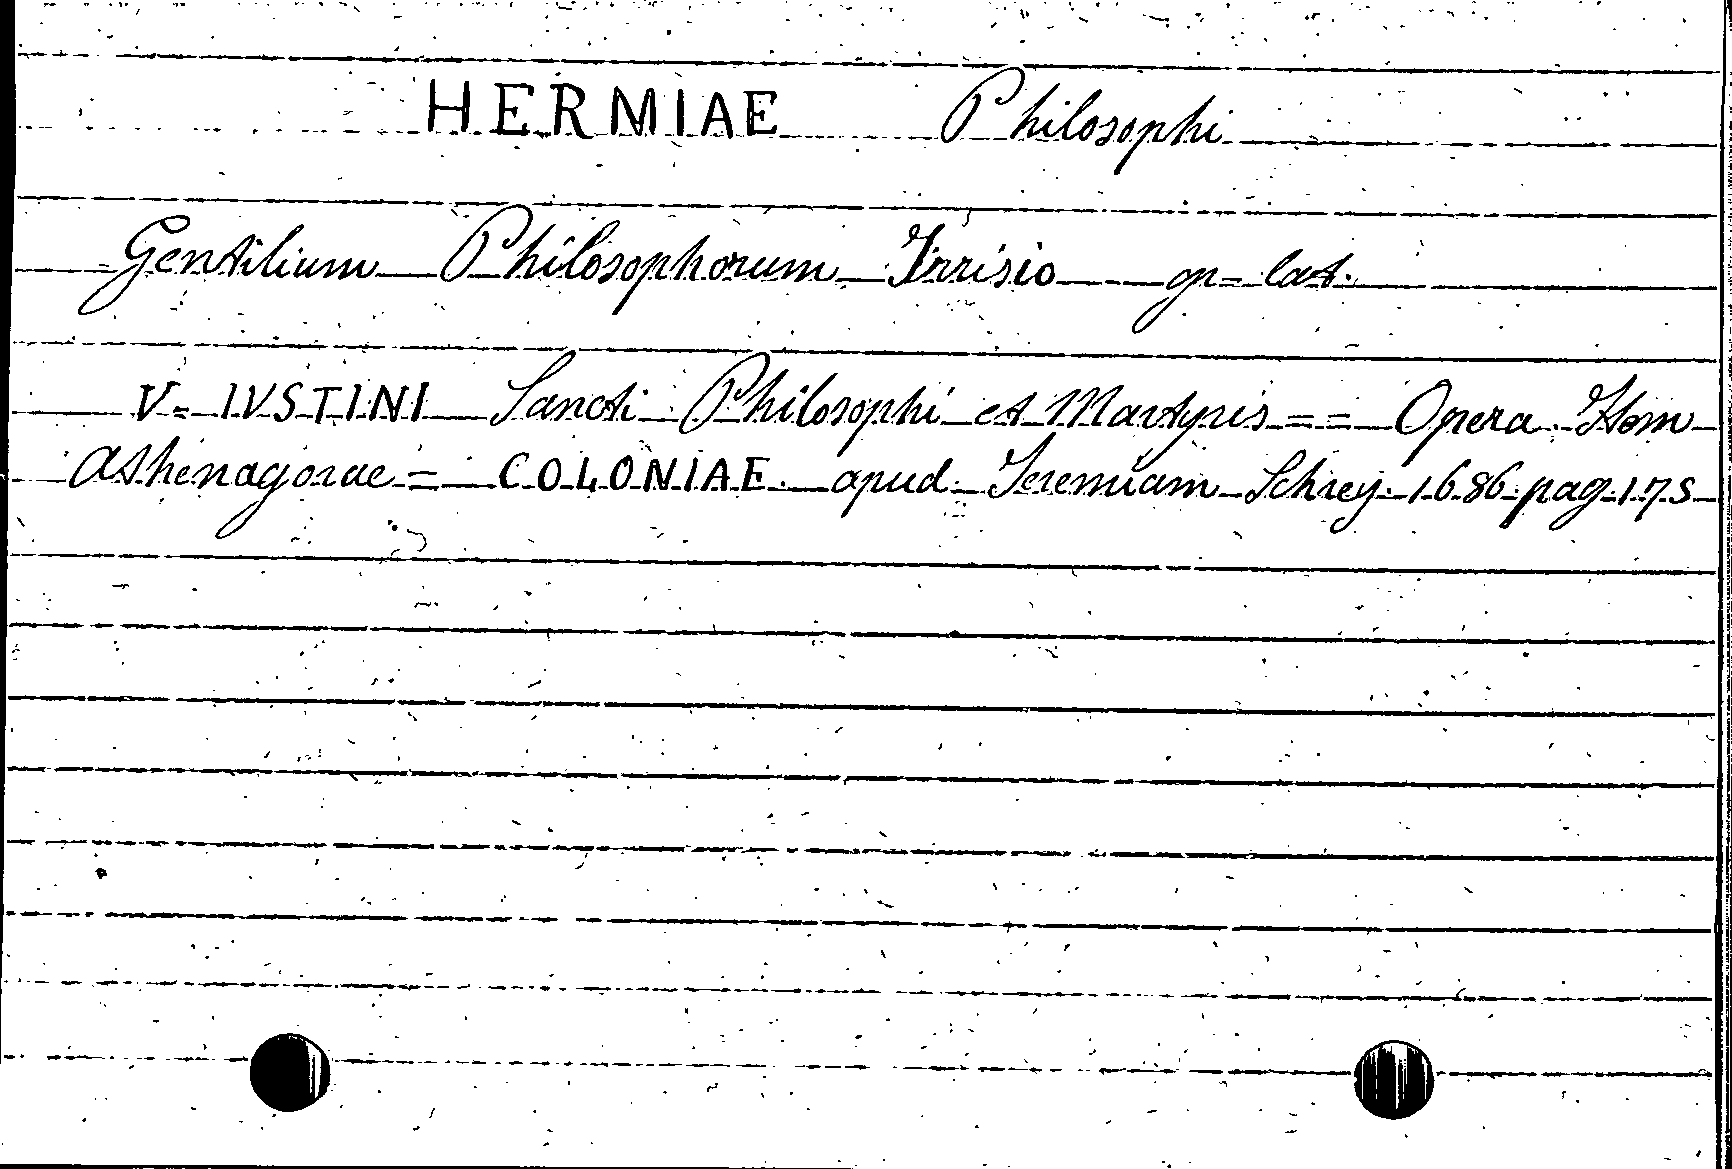 HERMIAE Philosophi
Gentilium Philosophorum Irrisio gr= lat.
V= IVSTINI Sancti Philosophi et Martyris == Opera. Item
Athenagorae = COLONIAE. apud. Jeremiam Schrey. 1686. pag. 175